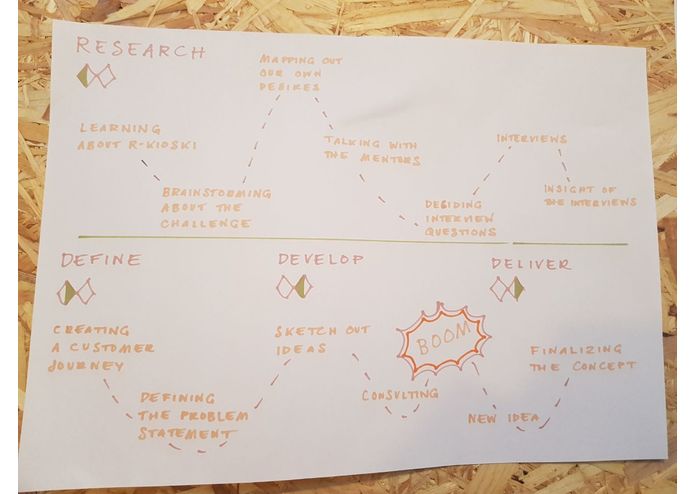 RESEARCH
MAPPING OUT
OUR OWN
DESIRES
LEARNING
ABOUT R-KIOSKI
BRAINSTORMING
ABOUT THE
CHALLENGE
TALKING WITH
THE MENTORS
DECIDING
INTERVIEW
QUESTIONS
INTERVIEWS
INSIGHT OF
THE INTERVIEWS
DEFINE
CREATING
A CUSTOMER
JOURNEY
DEFINING
THE PROBLEM
STATEMENT
DEVELOP
SKETCH OUT
IDEAS
CONSULTING
BOOM
NEW IDEA
DELIVER
FINALIZING
THE CONCEPT